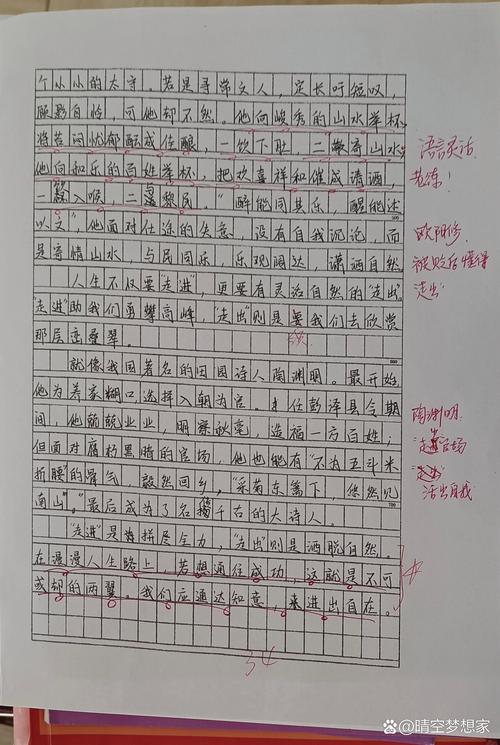 个小小的太守。若是寻常文人,定长吁短叹,
顾影自怜,可他却不然。他向峻秀的山水举杯,
将苦闷忧郁酝成佳酿,一饮下肚,二散寄山水,
他向和乐的百姓举杯,把欢喜祥和催成清酒,
一飲入喉,二黎民。“醉能同其乐,醒能述
以文”,他面对仕途的失意,没有自我沉沦,而
是寄情山水,与民同乐,乐观阔达,潇洒自然。
500
人生不仅要“走进”,更要有灵活自然的“走出”。
“走进”助我们勇攀高峰,“走出”则是要我们去欣赏
那层峦叠翠。
600
就像我国著名的田园诗人陶渊明。最开始,
他为养家糊口选择入朝为官。任彭泽县令期
间,他兢兢业业,明察秋毫,造福一方百姓;
但面对腐朽黑暗的官场,他也能有“不为五斗米
折腰”的骨气,毅然回乡,“采菊东篱下,悠然见
南山”。最后成为了名千古的大诗人。
700
“走进”是拼尽全力,“走出”则是洒脱自然。
在漫漫人生路上,若想通往成功,这就是不可
或却的两翼。我们应通达知意,来进出自在。
34
语言灵活
老练!
欧阳修
被贬后懂得
“走出”
陶渊明
“走出”官场
活出自我
@晴空梦想家